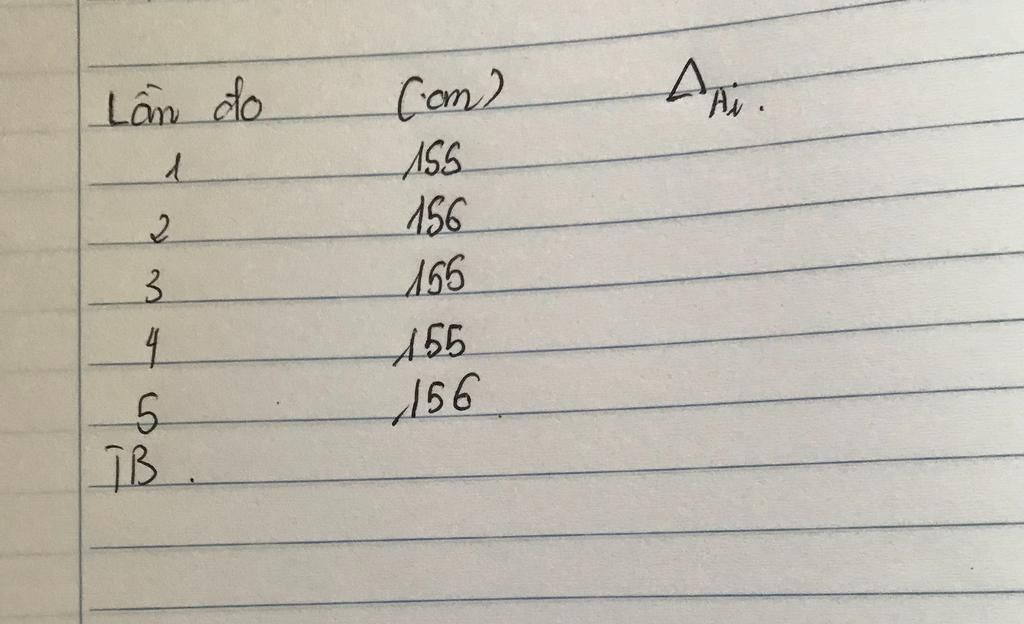 Lần đo (cm) ΔAi.
1 155
2 156
3 155
4 155
5 156
TB.